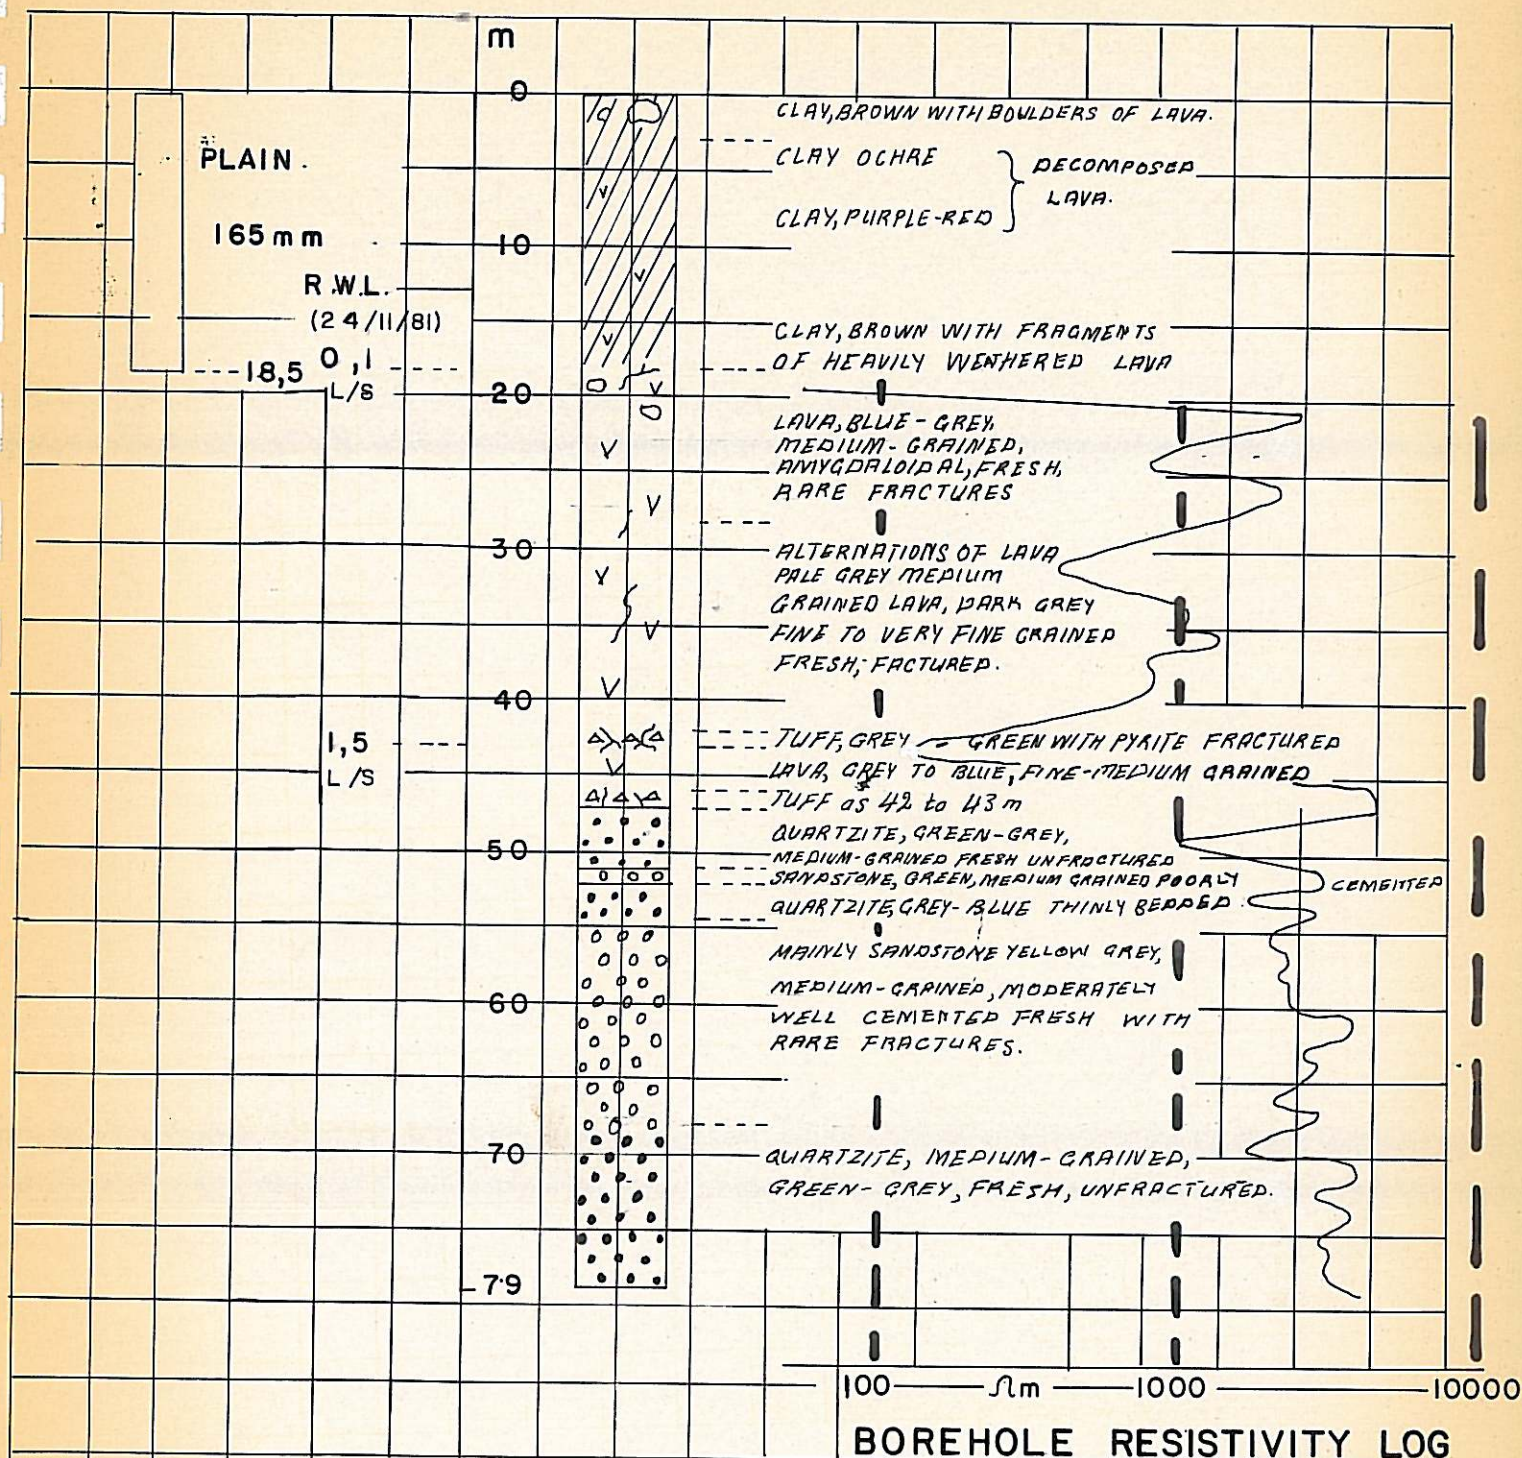 m
0
CLAY, BROWN WITH BOULDERS OF LAVA.
PLAIN.
CLAY OCHRE
DECOMPOSED
LAVA.
CLAY, PURPLE-RED
165mm
10
R.W.L.
(24/11/81)
CLAY, BROWN WITH FRAGMENTS
OF HEAVILY WEATHERED LAVA
18,5
0,1
L/S
20
LAVA, BLUE-GREY,
MEDIUM-GRAINED,
AMYGDALOIDAL, FRESH,
RARE FRACTURES
30
ALTERNATIONS OF LAVA
PALE GREY MEDIUM
GRAINED LAVA, DARK GREY
FINE TO VERY FINE GRAINED
FRESH, FACTURED.
40
1,5
L/S
TUFF, GREY - GREEN WITH PYRITE FRACTURED
LAVA, GREY TO BLUE, FINE-MEDIUM GRAINED
TUFF as 42 to 43 m
QUARTZITE, GREEN-GREY,
50
MEDIUM-GRAINED FRESH UNFRACTURED
SANDSTONE, GREEN, MEDIUM GRAINED POORLY CEMENTED
QUARTZITE, GREY-BLUE THINLY BEDDED.
MAINLY SANDSTONE YELLOW GREY,
MEDIUM-GRAINED, MODERATELY
60
WELL CEMENTED FRESH WITH
RARE FRACTURES.
70
QUARTZITE, MEDIUM-GRAINED,
GREEN-GREY, FRESH, UNFRACTURED.
79
100 Ωm 1000 10000
BOREHOLE RESISTIVITY LOG